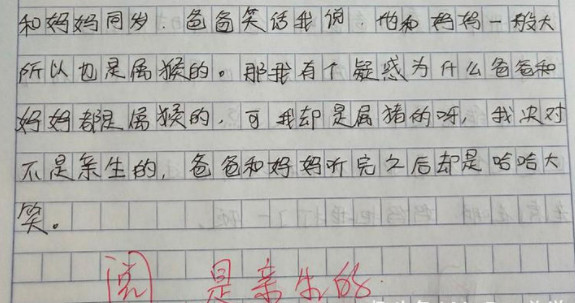 和妈妈同岁.爸爸笑话我说.他和妈妈一般大
所以也是属猴的。那我有个疑惑为什么爸爸和
妈妈都是属猴的,可我却是属猪的呀,我决对
不是亲生的,爸爸和妈妈听完之后却是哈哈大
笑。
阅 是亲生的.